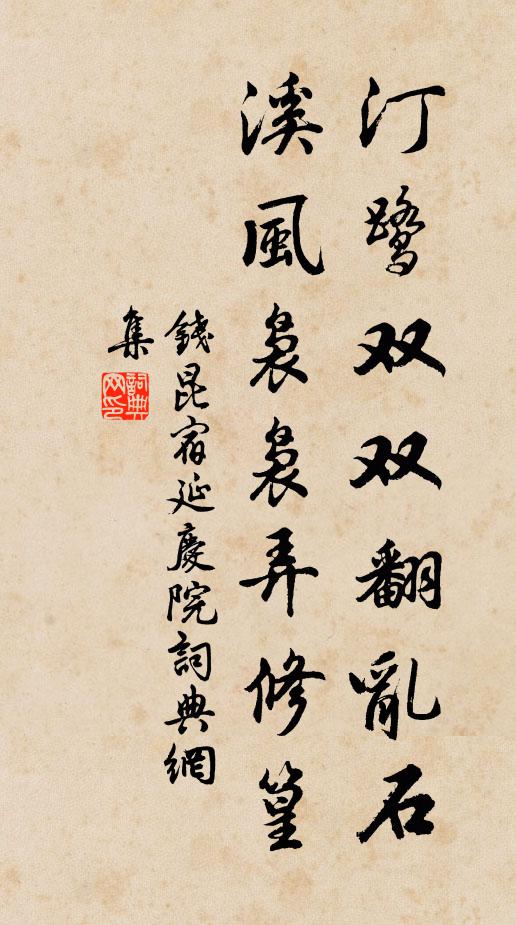 汀鹭双双翻亂石
溪風裊裊弄修篁
錢昆宿延慶院詞典網
集
詞典
网印